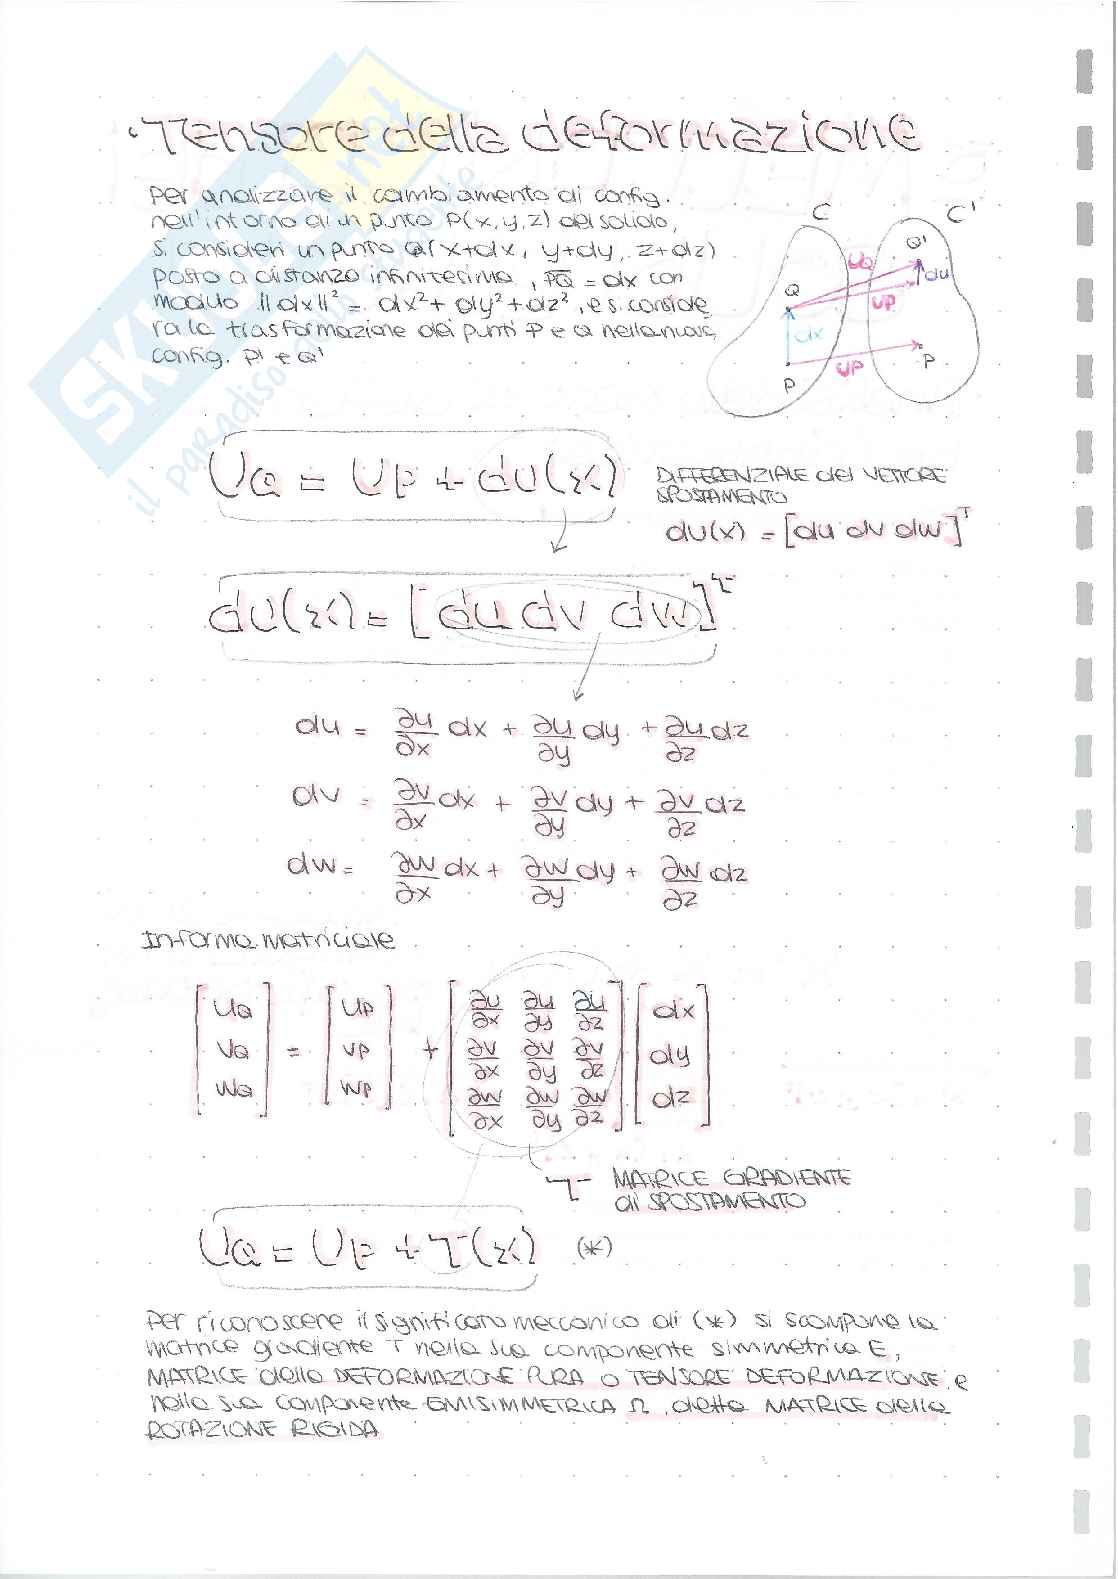 • Tensore della deformazione
Per analizzare il cambiamento di config.
nell'intorno di un punto P(x,y,z) del solido,
si consideri un punto Q(x+dx, y+dy, z+dz)
posto a distanza infinitesima, PQ = dx con
modulo ||dx||² = dx² + dy² + dz², e si conside
ra la trasformazione dei punti P e Q nella nuova
config. P' e Q'
C C'
Q' UQ du
Q UP
dx
P UP P
UQ = UP + du(x)
DIFFERENZIALE del VETTORE
SPOSTAMENTO
du(x) = [du dv dw]ᵀ
dU(x) = [du dv dw]ᵀ
du = ∂u/∂x dx + ∂u/∂y dy + ∂u/∂z dz
dv = ∂v/∂x dx + ∂v/∂y dy + ∂v/∂z dz
dw = ∂w/∂x dx + ∂w/∂y dy + ∂w/∂z dz
In forma matriciale
[UQ] = [UP] + [∂u/∂x ∂u/∂y ∂u/∂z] [dx]
[VQ] = [VP] + [∂v/∂x ∂v/∂y ∂v/∂z] [dy]
[WQ] = [WP] + [∂w/∂x ∂w/∂y ∂w/∂z] [dz]
T MATRICE GRADIENTE
di SPOSTAMENTO
UQ = UP + T(x) (*)
Per riconoscere il significato meccanico di (*) si scompone la
matrice gradiente T nella sua componente simmetrica E,
MATRICE della DEFORMAZIONE PURA O TENSORE DEFORMAZIONE, e
nella sua componente EMISIMMETRICA Ω, detta MATRICE della
ROTAZIONE RIGIDA